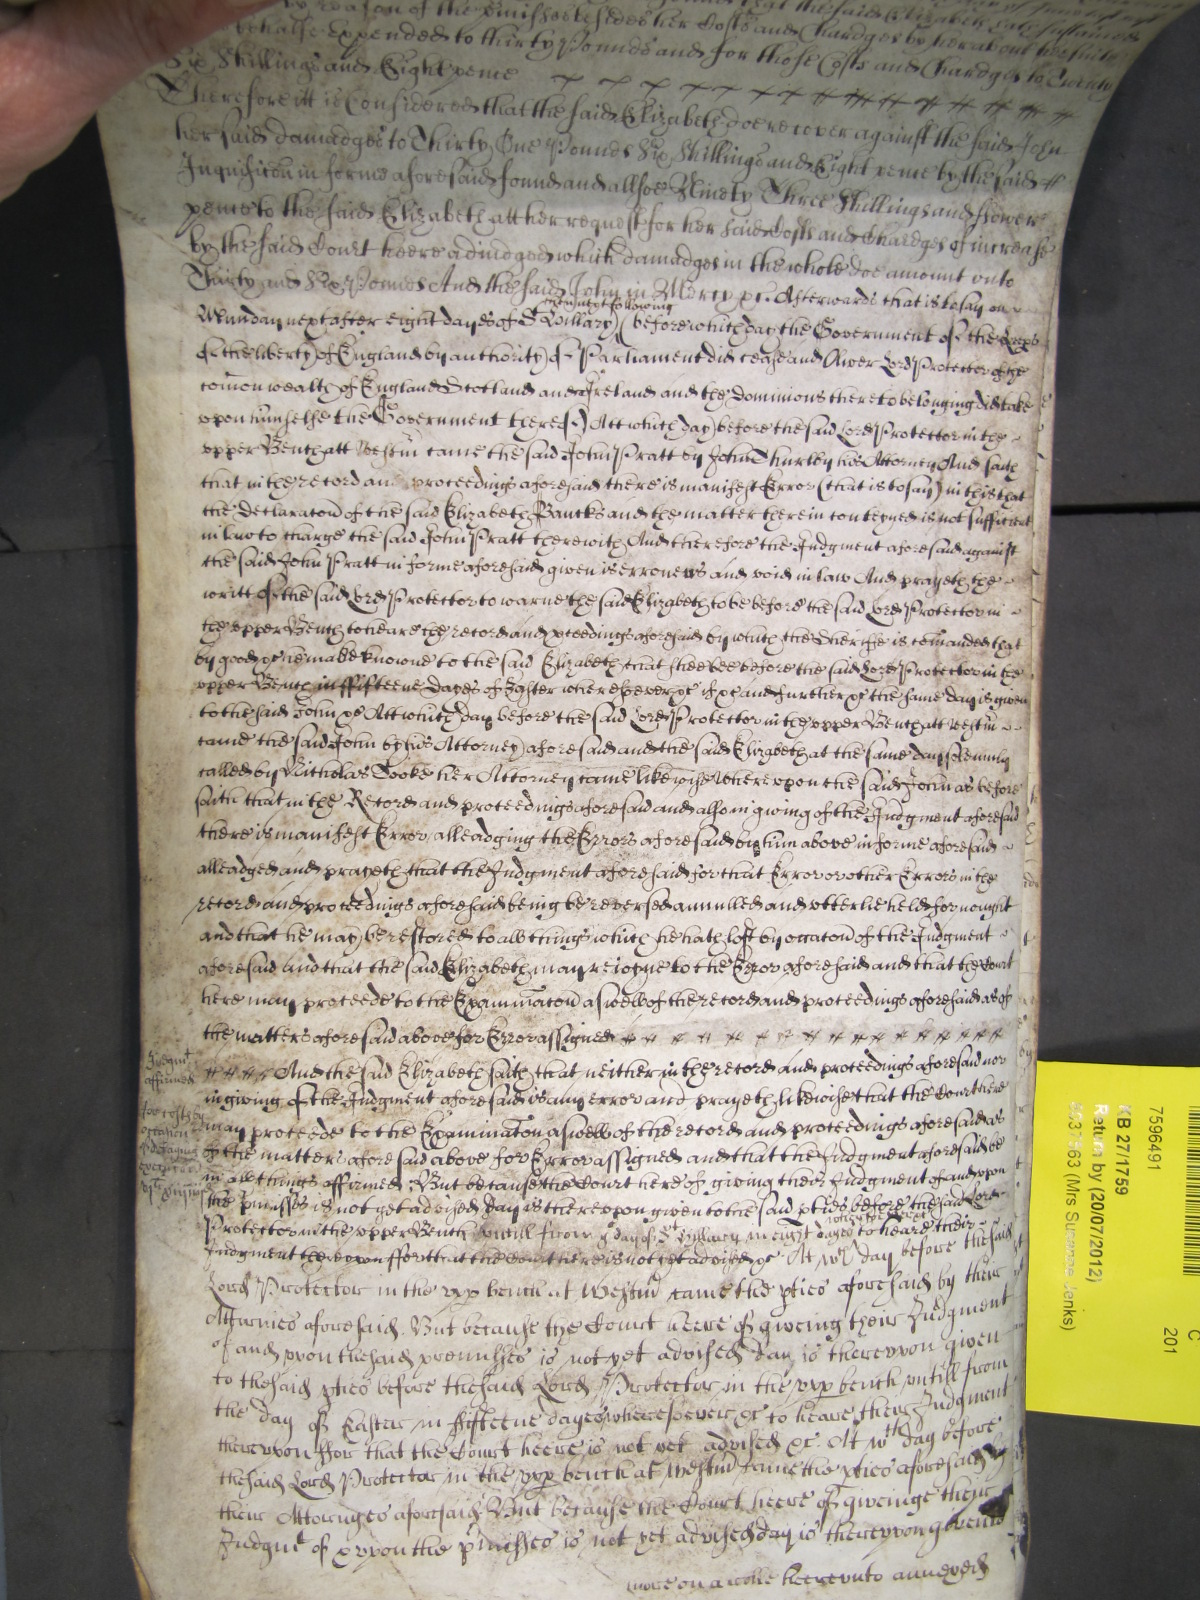 by reason of the premisses besides her Costs and Chardges by her about her suite
behalfe expended to thirty Pounds and for those Costs and Chardges to Twenty
Six Shillings and Eight pence
Therefore itt is Considered that the said Elizabeth doe recover against the said John
her said damadges to Thirty One Pounds Six Shillings and Eight pence by the said
Inquisicon in forme aforesaid found and allsoe Ninety Three Shillings and ffower
pence to the said Elizabeth att her request for her said Costs and Chardges of increase
by the said Court heere adiudged which damadges in the whole doe amount unto
Thirty and Six Pounds And the said John in Mercy &c. Afterwards that is to say on
Munday next after eight dayes of St Hillary then next following before which day the Government of the keeps
of the liberty of England by authority of Parliament did cease and Oliver Lord Protector of the
comon wealth of England Scotland and Ireland and the dominions thereto belonging did take
upon himselfe the Government thereof Att which day before the said Lord Protector in the
upper Bench att Westm came the said John Pratt by John Thurlby his Attorney And saith
that in the record and proceedings aforesaid there is manifest Error (that is to say) in this that
the Declaraton of the said Elizabeth Bancks and the matter therein conteyned is not sufficient
in law to charge the said John Pratt therewith And therefore the Judgment aforesaid against
the said John Pratt in forme aforesaid given is erroneous and void in law And prayeth the
writt of the said Lord Protector to warne the said Elizabeth to be before the said Lord Protector in
the upper Bench to heare the record and pceedings aforesaid by which the Sheriffe is comanded that
by good &c he make knowne to the said Elizabeth that shee bee before the said Lord Protector in the
upper Bench in ffifteene dayes of Easter wheresoever &c if &c and further &c the same day is given
to the said John &c Att which day before the said Lord Protector in the upper Bench att Westm
came the said John by his Attorney aforesaid and the said Elizabeth at the same day solemnly
called by Nicholas Cooke her Attorney came likewise Whereupon the said John as before
saith that in the Record and proceedings aforesaid and also in giving of the Judgment aforesaid
there is manifest Error alleadging the Errors aforesaid by him above in forme aforesaid
alleadged and prayeth that the Judgment aforesaid for that Error or other Errors in the
record and proceedings aforesaid being be reversed annulled and utterlie held for nought
and that he may be restored to all things which he hath lost by occaton of the Judgment
aforesaid And that the said Elizabeth may reioyne to the Error aforesaid and that the Court
here may proceede to the Examinaton aswell of the record and proceedings aforesaid as of
the matters aforesaid above for Error assigned
Judgmt
affirmed
And the said Elizabeth saith that neither in the record and proceedings aforesaid nor
in giving of the Judgment aforesaid is any error and prayeth likewise that the Court here
may proceede to the Examinaton aswell of the record and proceedings aforesaid as
of the matters aforesaid above for Error assigned and that the Judgment aforesaid be
in all things affirmed; But because the Court here of giving their Judgment of and upon
the pmisses is not yet advised day is thereupon given to the said pties before the said Lord
Protector in the upper Bench untill from ye day of St Hillary in eight dayes to heare their
Judgment thereupon ffor that the Court there is not yet advised &c At wch day before the said
Lord Protector in the upp bench at Westm came the pties aforesaid by their
Attornies aforesaid. But because the Court heere of giveing their Judgment
of and upon the said premisses is not yet advised day is thereupon given
to the said pties before the said Lord Protector in the upp bench untill from
the day of Easter in fifteene dayes wheresoever &c to heare their Judgment
thereupon ffor that the Court heere is not yet advised &c. At wch day before
the said Lord Protector in the upp bench at Westm came the pties aforesaid by
their Attorneyes aforesaid But because the Court heere of giveinge their
Judgmt of & upon the pmisses is not yet advised day is thereupon given to
more on a rolle heereunto annexed
7596491
KB 27/1759
Return by (20/07/2012)
(Mrs Susanne Jenks)
C
201